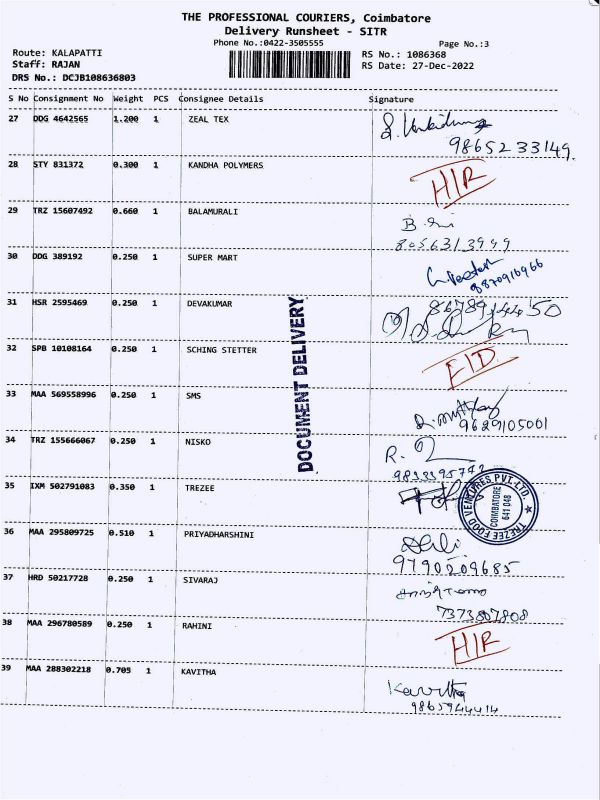 THE PROFESSIONAL COURIERS, Coimbatore
Delivery Runsheet - SITR
Phone No.:0422-3505555
Page No.:3
Route: KALAPATTI
RS No.: 1086368
Staff: RAJAN
RS Date: 27-Dec-2022
DRS No.: DCJB108636803
S No Consignment No Weight PCS Consignee Details Signature
27 DDG 4642565 1.200 1 ZEAL TEX
98652 33149.
28 STY 831372 0.300 1 KANDHA POLYMERS
HIR
29 TRZ 15607492 0.660 1 BALAMURALI
8056313999
30 DDG 389192 0.250 1 SUPER MART
31 HSR 2595469 0.250 1 DEVAKUMAR
8678914450
32 SPB 10108164 0.250 1 SCHING STETTER
33 MAA 569558996 0.250 1 SMS
9629105001
34 TRZ 155666067 0.250 1 NISKO
R.
35 IXM 502791083 0.350 1 TREZEE
TREZEE FOOD VENTURES PVT.LTD.
COIMBATORE
641 048
36 MAA 295809725 0.510 1 PRIYADHARSHINI
9790209685
37 HRD 50217728 0.250 1 SIVARAJ
7373807808
38 MAA 296780589 0.250 1 RAHINI
HIR
39 MAA 288302218 0.705 1 KAVITHA
Kavitha
9865944414
DOCUMENT DELIVERY